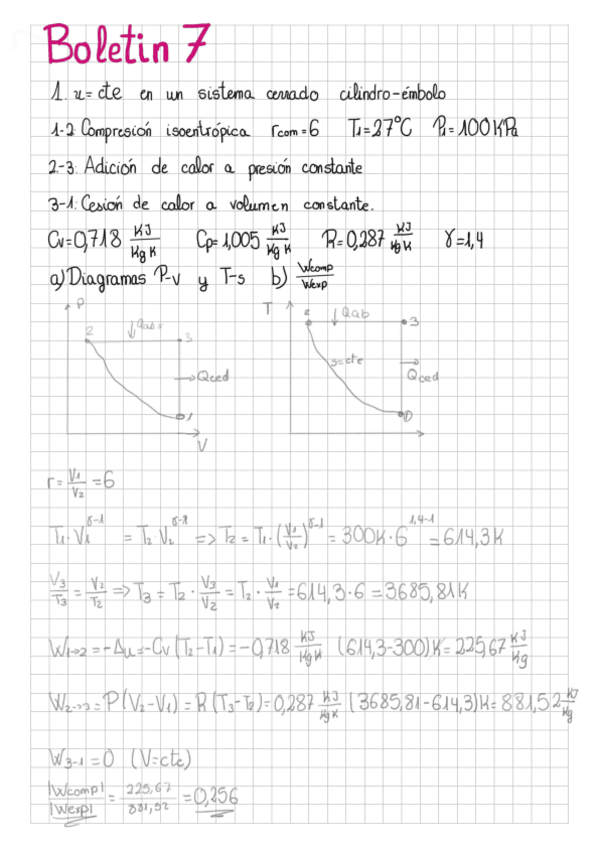 Boletin 7
1. u=cte en un sistema cerrado cilindro-émbolo
1-2: Compresión isoentrópica rcom=6 T1=27°C P1=100KPa
2-3: Adición de calor a presión constante
3-1: Cesión de calor a volumen constante.
Cv=0,718 KJ/Kg K Cp=1,005 KJ/Kg K R=0,287 KJ/Kg K γ=1,4
a) Diagramas P-v y T-s b) Wcomp/Wexp
P
2 ↓Qab= 3
→Qced
1
V
T
2 ↓Qab 3
s=cte
Qced
r = V1/V2 = 6
T1·V1^γ-1 = T2·V2^γ-1 => T2 = T1·(V1/V2)^γ-1 = 300K·6^1,4-1 = 614,3K
V3/T3 = V2/T2 => T3 = T2·V3/V2 = T2·V1/V2 = 614,3·6 = 3685,81K
W1→2 = -Δu = -Cv(T2-T1) = -0,718 KJ/Kg K (614,3-300)K = 225,67 KJ/Kg
W2→3 = P(V2-V1) = R(T3-T2) = 0,287 KJ/Kg K (3685,81-614,3)K = 881,52 KJ/Kg
W3-1 = 0 (V=cte)
|Wcomp|/|Wexp| = 225,67/881,52 = 0,256